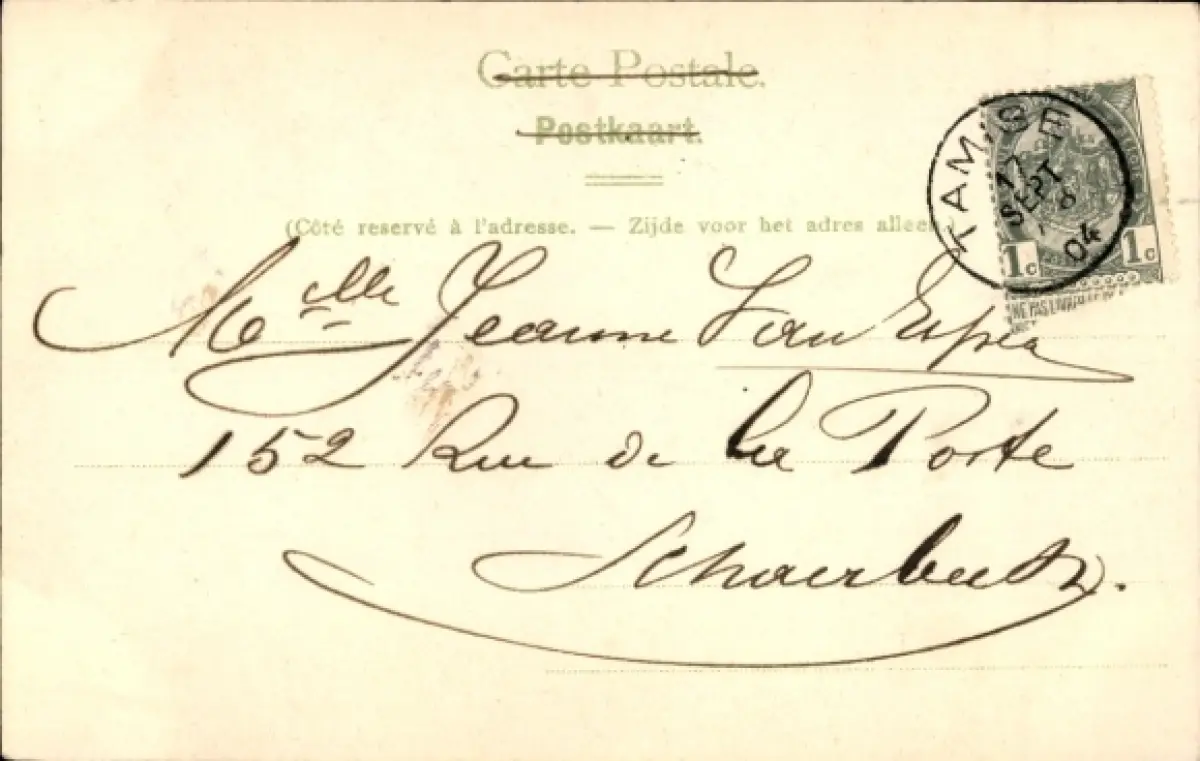 Carte Postale.
Postkaart.
(Côté reservé à l'adresse. — Zijde voor het adres alleen)
TAMISE
17
SEPT
8
04
1c 1c
NE PAS LIVRER
Mlle Jeanne Van
152 Rue de la Porte
Schaerbeek.